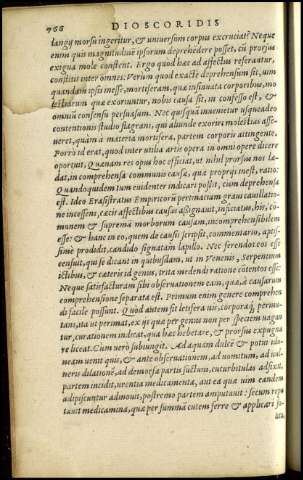 766 DIOSCORIDIS
langij morsu ingeritur, & universum corpus excruciat? Neque
enim quis magnitudine ipsorum deprehēdere posset, cū prorsus
exigua mole constent. Ergo quod hæc ad affectus referatur,
constitit inter omnes. Verùm quod exactè deprehensum sit, uim
quandam ipsis inesse, mortiferam, quæ insinuata corporibus, mo
lestiarum quæ exoriuntur, nobis causa sit, in confesso est, &
omniū consensu persuasum. Nec quisquā inuenietur usqueadeo
contentionis studio flagrans, qui aliunde exoriri molestias asse-
ueret, quàm à materia mortifera, partem corporis attingente.
Porrò id erat, quod inter utilia artis opera in omni opere dicere
oportuit. Quandam res opus hoc efficiat, ut nihil prorsus nos læ-
dat, in comprehensa communis causa, qua propter inest, ratio:
Quandoquidem tum euidenter indicari potest, cùm deprehensa
est. Ideo Erasistratus Empiricorū pertinacum gratia cauillatio-
ne incessens, cæcis affectibus causas assignauit,
monem & suprema morborum causam, incomprehensibilem
esse: & hanc in eo, quem de causis scripsit, commentario, apertis-
simè prodidit, candido signatam lapillo. Nec ferendos eos est
censuit, qui se dicant in quibusdam, ut in Venenis, Serpentum
ictibus, & cæteris id genus, trita medendi ratione cōtentos esse.
Neque satisfacturam sibi obseruationem eam, quæ à causarum
comprehensione separata est. Primum enim genere comprehen
di facile possunt. Quòd autem sit letifera uis, corpora permu-
tans, ita ut perimat, ex ijs quæ per genus non per speciem uagan
tur, curationem indicat, quā hæc hebetare, & prorsus expugna
re liceat. Cum uerò subiungit. Ad aquam dulcē & potui ido-
neam uenit quis, & ante obseruationem, ad uomitum, ad uul-
neris dilationē, ad demorsæ partis suctum, cucurbitulas adfixit
partem incidit, urentia medicamenta, aut ea quæ uim eandem
adipiscuntur admouit, postremo partem amputauit: secum repu
tauit medicamina, quæ per summā cutem ferro & applicari so